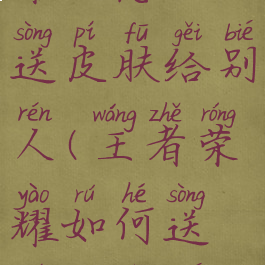 sòng pí fū gěi bié
送皮肤给别
rén wáng zhě róng
人(王者荣
yào rú hé sòng
耀如何送